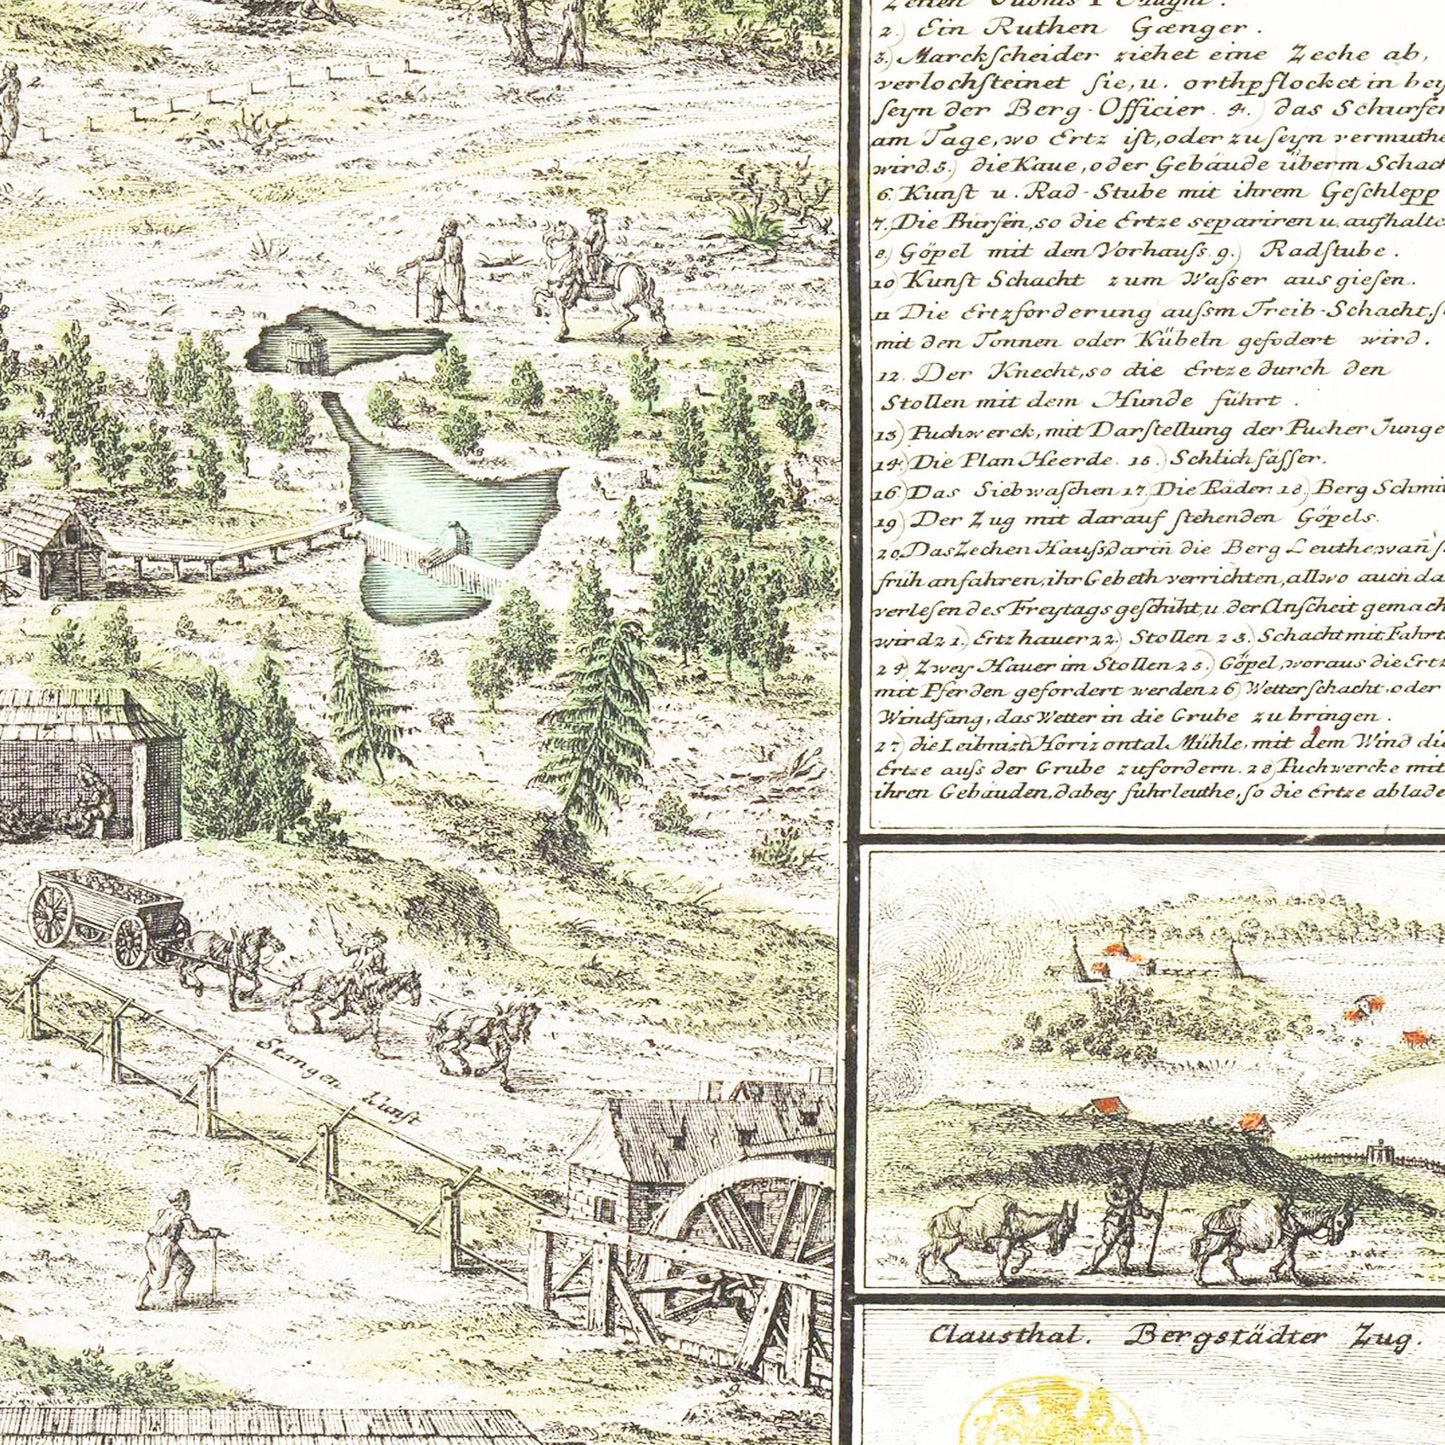 2.) Ein Ruthen Gænger.
3.) Marckscheider ziehet eine Zeche ab,
verlochsteinet sie, u. orthpflocket in bey
seyn der Berg-Officier. 4.) das Schurfen
am Tage, wo Ertz ist, oder zu seyn vermuthe
wird. 5.) die Kaue, oder Gebäude überm Schach
6. Kunst u. Rad-Stube mit ihrem Geschlepp
7. Die Bursen, so die Ertze separiren u. aufhalte
8) Göpel mit den Vorhauss. 9.) Radstube.
10) Kunst Schacht zum Wasser ausgiesen.
11 Die Ertzforderung aussm Treib-Schacht, s
mit den Tonnen oder Kübeln gefodert wird.
12. Der Knecht, so die Ertze durch den
Stollen mit dem Hunde führt.
13) Puchwerck, mit Darstellung der Pucher Junge
14) Die Plan Heerde. 15.) Schlichfässer.
16) Das Siebwaschen 17) Die Räder 18) Berg Schmi
19) Der Zug mit darauf stehenden Göpels.
20. Das Zechen Hauss, darin die Berg Leuthe, wan s
früh anfahren, ihr Gebeth verrichten, allwo auch da
verlesen des Freytags geschiht, u. der Anscheit gemach
wird 21.) Ertzhauer 22.) Stollen 23.) Schacht mit Fahrt
24) Zwey Hauer im Stollen 25.) Göpel, woraus die Ertz
mit Pferden gefordert werden 26) Wetterschacht, oder
Windfang, das Wetter in die Grube zu bringen.
27) die Leibnizti Horizontal Mühle, mit dem Wind die
Ertze auss der Grube zufordern. 28) Puchwercke mit
ihren Gebäuden, dabey fuhrleuthe, so die Ertze ablade
2
6
Stangen Kunst
9
Clausthal. Bergstädter Zug.